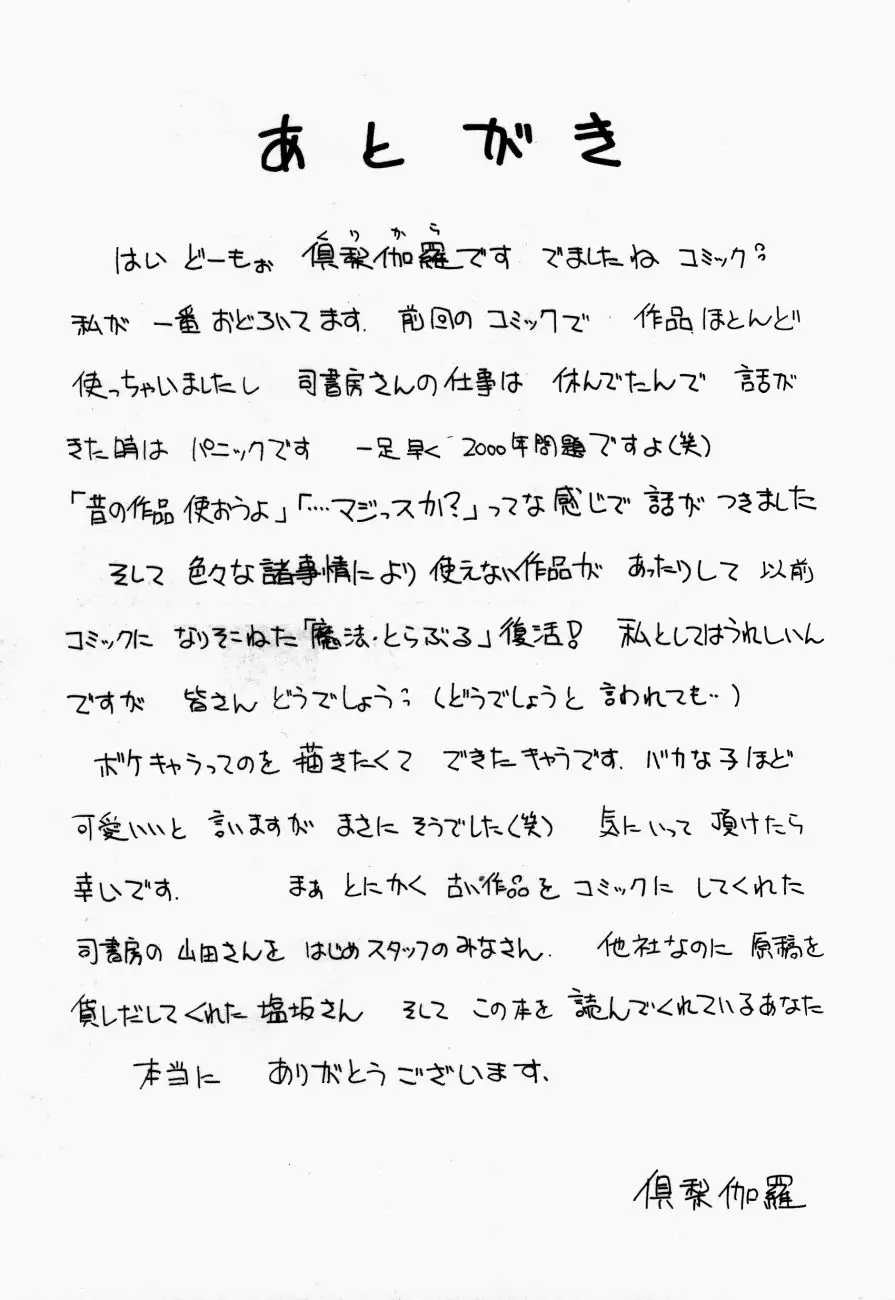 あとがき
くりから
はい どーもぉ 倶梨伽羅です でましたね コミック〜
私が 一番 おどろいてます. 前回の コミックで 作品 ほとんど
使っちゃいましたし 司書房さんの仕事は 休んでたんで 話が
きた時は パニックです 一足早く 2000年問題ですよ(笑)
「昔の作品 使おうよ」「‥‥マジっスか?」ってな 感じで 話が つきました
そして 色々な 諸事情により 使えない作品が あったりして 以前
コミックに なりそこねた「魔法・とらぶる」復活! 私としてはうれしいん
ですが 皆さん どうでしょう〜 (どうでしょうと 言われても‥)
ボケキャラってのを 描きたくて できたキャラです. バカな子ほど
可愛いいと 言いますが まさに そうでした(笑) 気にいって 頂けたら
幸いです. まぁ とにかく 古い作品を コミックに してくれた
司書房の 山田さんを はじめスタッフのみなさん. 他社なのに 原稿を
貸しだしてくれた 塩坂さん そして この本を 読んでくれているあなた
本当に ありがとうございます.
倶梨伽羅